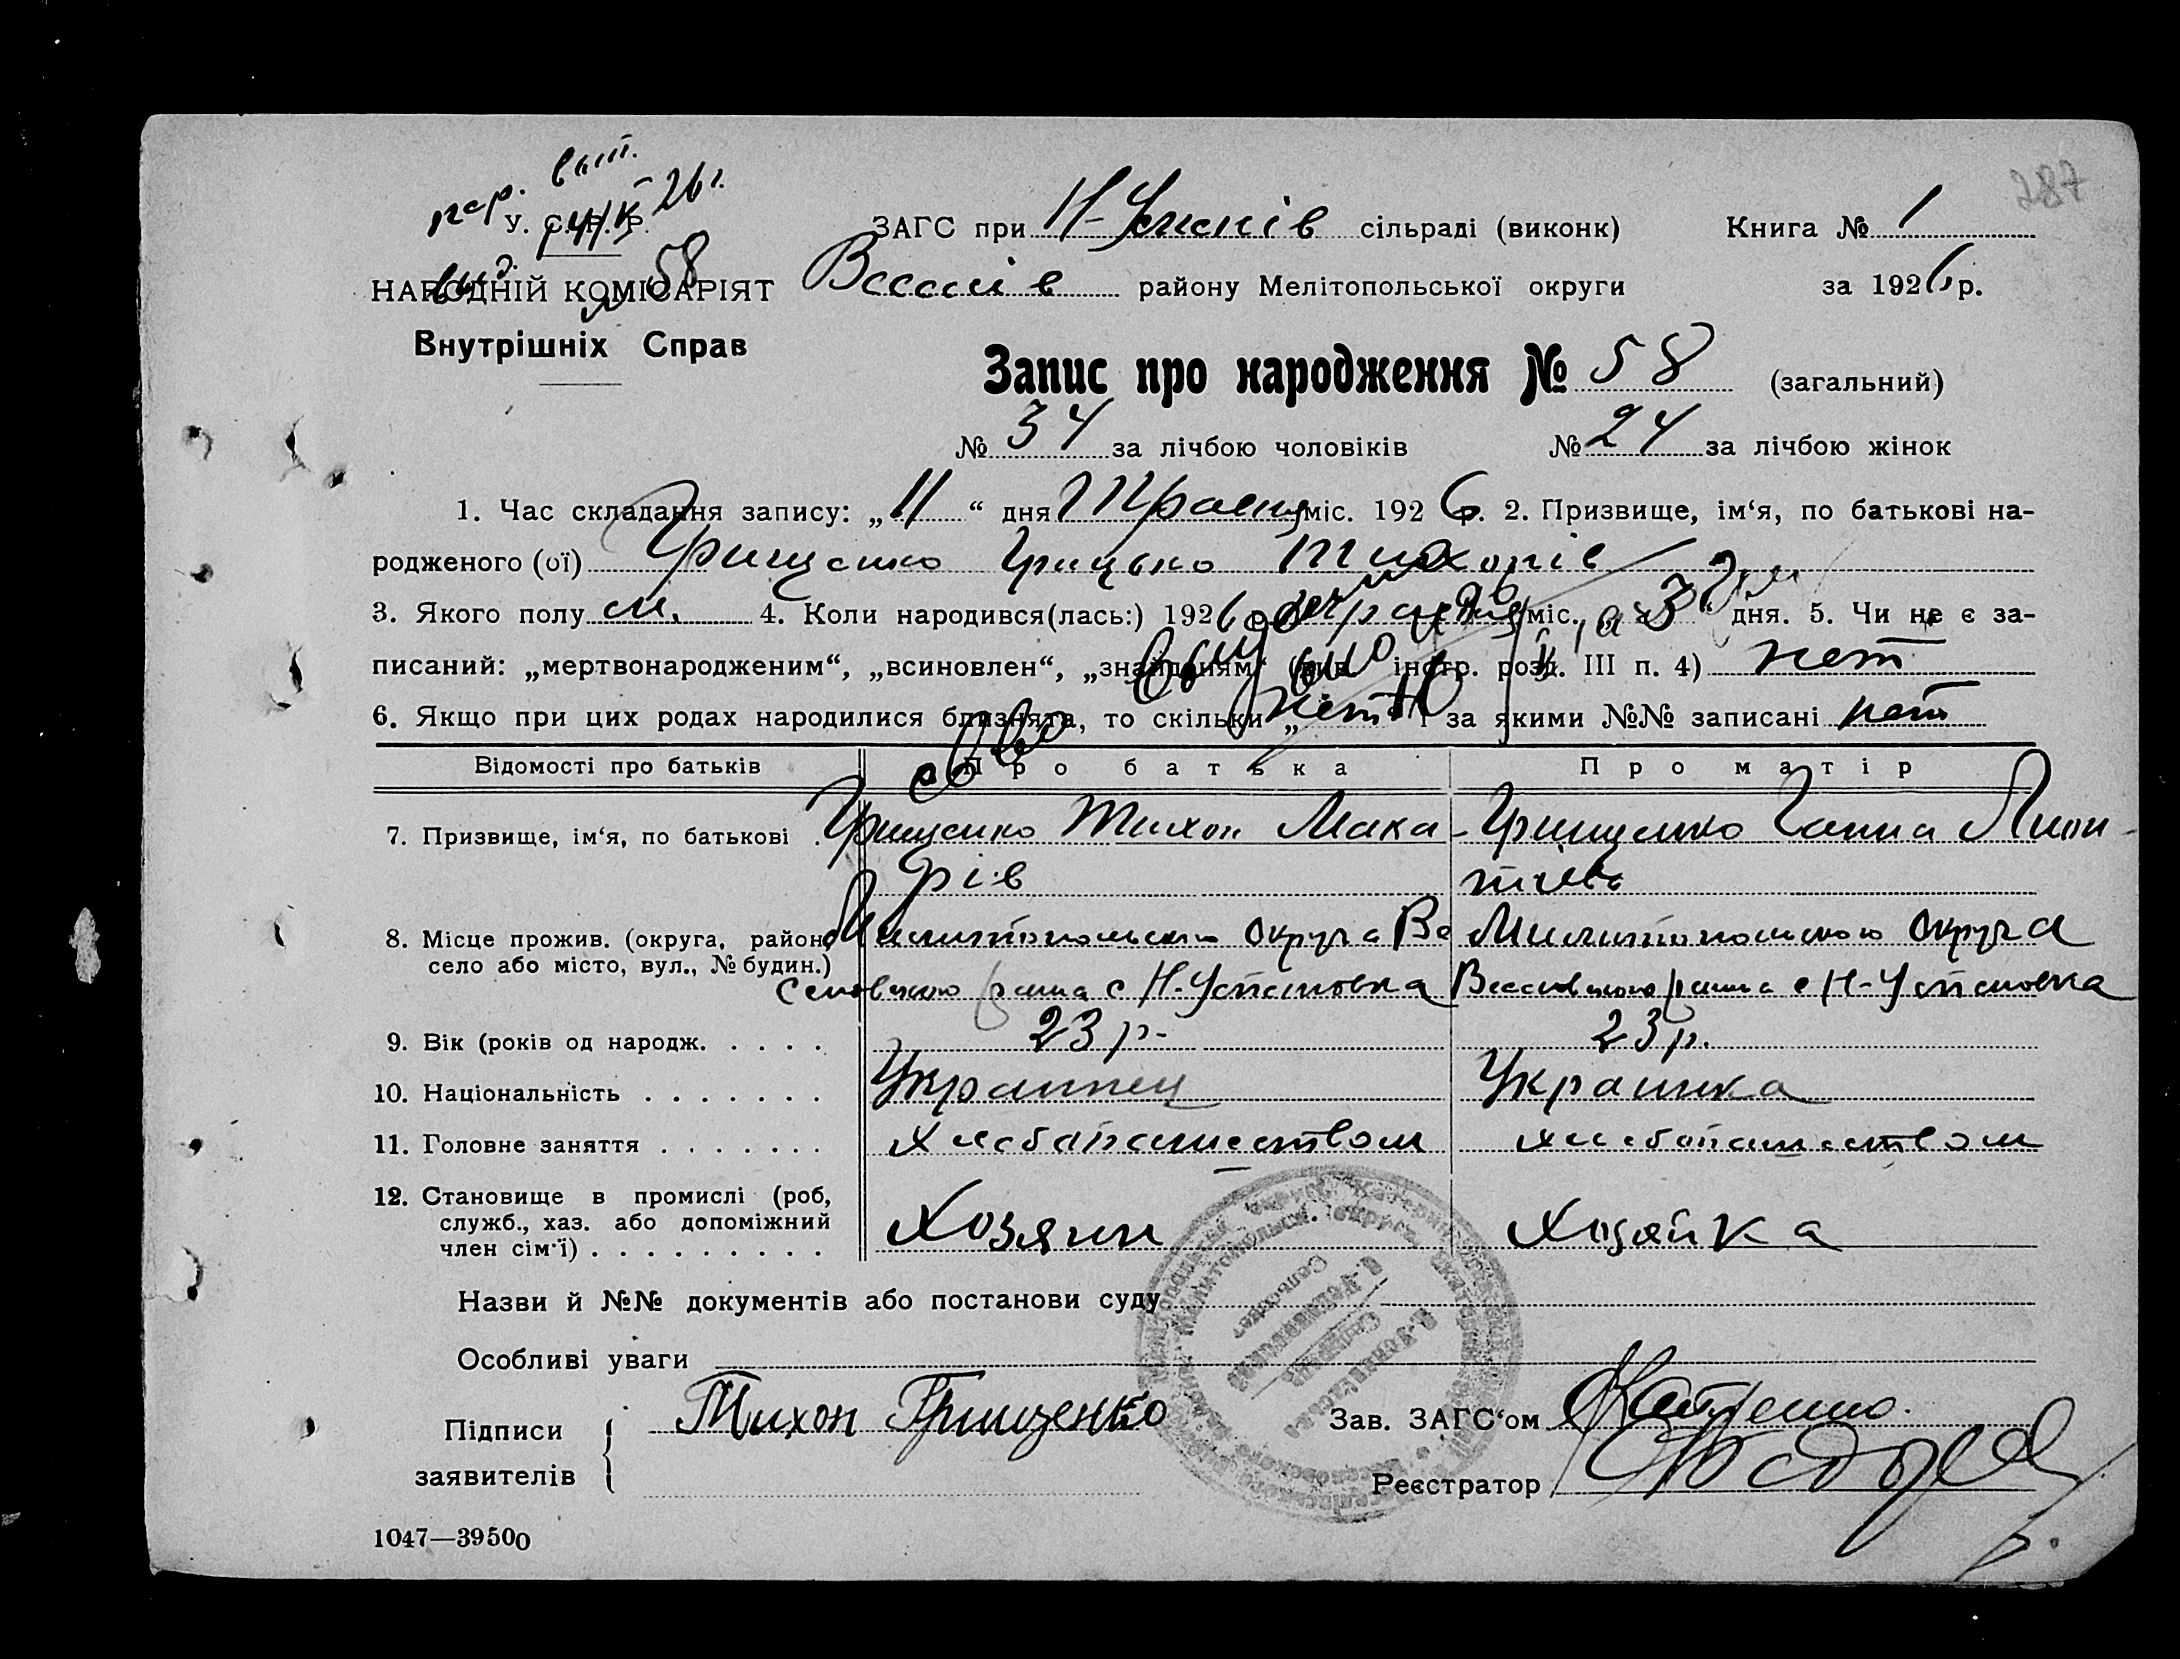 287
У. С. Р. Р. 26 г.
ЗАГС при Н-Успенів сільраді (виконк) Книга № 1
НАРОДНІЙ КОМІСАРІЯТ № 58
Веселів району Мелітопольської округи за 1926 р.
Внутрішніх Справ
Запис про народження № 58 (загальний)
№ 34 за лічбою чоловіків № 24 за лічбою жінок
1. Час складання запису: „11“ дня Травня міс. 1926 р. 2. Призвище, ім‘я, по батькові на-
родженого (ої) Грищенко Грицько Тихонів
3. Якого полу м. 4. Коли народився(лась:) 1926 міс. „3“ дня. 5. Чи не є за-
писаний: „мертвонародженим“, „всиновлен“, „знайданям“ (див. інстр. розд. III п. 4) нет
6. Якщо при цих родах народилися близнята, то скільки „нет“ і за якими №№ записані нет
Відомості про батьків Про батька Про матір
7. Призвище, ім‘я, по батькові . Грищенко Тихон Мака- Грищенко Ганна
рів
8. Місце прожив. (округа, район, Милитопольского округа Ве Милитопольского округа
село або місто, вул., № будин.) селовского раина с Н-Успеновка Веселовского раина с Н-Успеновка
9. Вік (років од народж. . . . . 23 р. 23 р.
10. Національність . . . . . . . Украинец Украинка
11. Головне заняття . . . . . . . хлебапашеством хлебапашеством
12. Становище в промислі (роб, служб., хаз. або допоміжний член сім‘ї) . . . . . . . . . Хозяин Хозяйка
Назви й №№ документів або постанови суду
Особливі уваги
Підписи Тихон Грищенко Зав. ЗАГС‘ом
заявителів Реєстратор
1047—39500